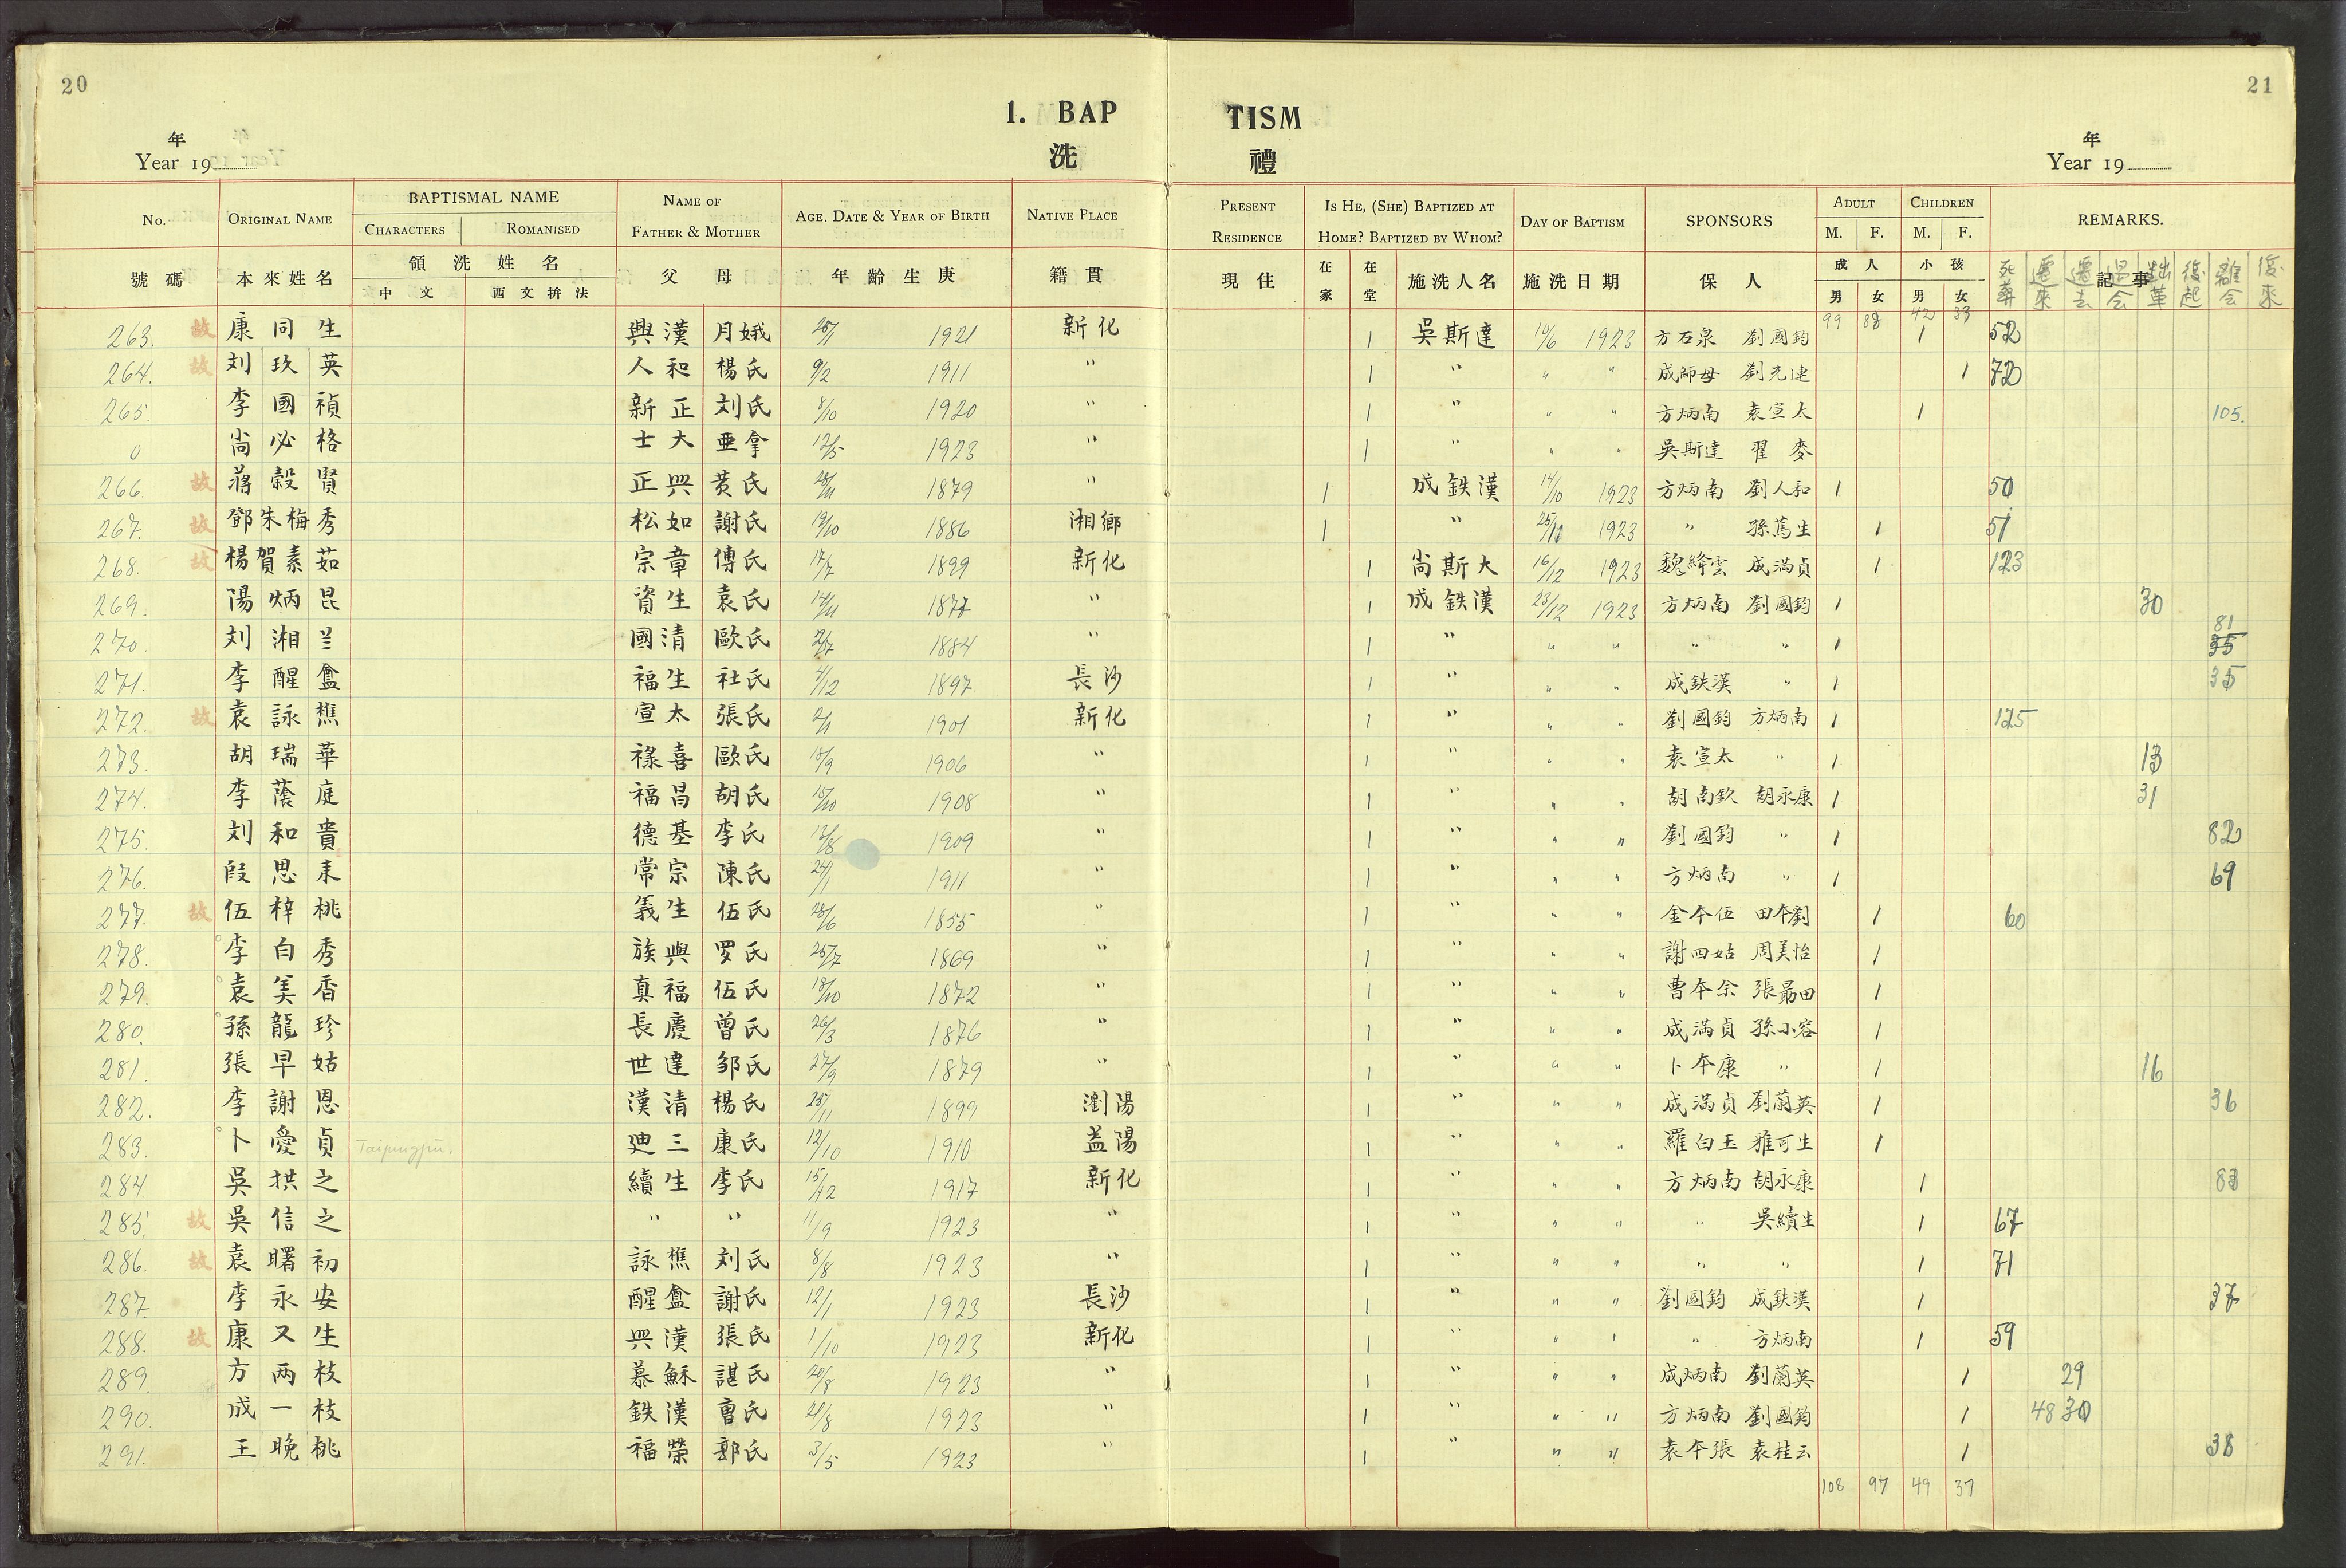 20
21
1. BAP TISM
洗 禮
年
Year 19
年
Year 19
No. ORIGINAL NAME BAPTISMAL NAME NAME OF FATHER & MOTHER AGE. DATE & YEAR OF BIRTH NATIVE PLACE PRESENT RESIDENCE IS HE, (SHE) BAPTIZED AT HOME? BAPTIZED BY WHOM? DAY OF BAPTISM SPONSORS ADULT CHILDREN REMARKS.
CHARACTERS ROMANISED M. F. M. F.
號碼 本來姓名 領洗姓名 父母 年齡生庚 籍貫 現住 在家 在堂 施洗人名 施洗日期 保人 成人 小孩 記事
中文 西文拚法 男 女 男 女
死葬 遷來 遷去 退会 革出 復起 離会 復來
99 88 42 33
263. 故 康同生 興漢 月娥 25/1 1921 新化 1 吳斯達 10/6 1923 方石泉 劉國鈞 1 52
264. 故 刘玖英 人和 楊氏 9/2 1911 " 1 " " " 成師母 劉光連 1 72
265. 李國禎 新正 刘氏 8/10 1920 " 1 " " " 方炳南 袁宣太 1 105.
0 尚必格 士大 亜拿 12/5 1923 " 1 " " " 吳斯達 翟麥
266. 故 蔣穀賢 正興 黄氏 28/11 1879 " 1 成鉄漢 14/10 1923 方炳南 劉人和 1 50
267. 故 鄧朱梅秀 松如 謝氏 19/10 1886 湘鄉 1 " 25/11 1923 " 孫萬生 1 51
268. 故 楊賀素茹 宗章 傅氏 17/7 1899 新化 1 尚斯大 16/12 1923 魏絳雲 成滿貞 1 123
269. 陽炳昆 資生 袁氏 14/11 1877 " 1 成鉄漢 23/12 1923 方炳南 劉國鈞 1 30
270. 刘湘兰 國清 歐氏 2/7 1884 " 1 " " " " " 1 81 35
271. 李醒盦 福生 社氏 4/12 1897 長沙 1 " " " 成鉄漢 " 1 35
272. 故 袁詠樵 宣太 張氏 2/1 1901 新化 1 " " " 劉國鈞 方炳南 1 125
273. 胡瑞華 祿喜 歐氏 18/9 1906 " 1 " " " 袁宣太 " 1 13
274. 李蔭庭 福昌 胡氏 15/10 1908 " 1 " " " 胡南欽 胡永康 1 31
275. 刘和貴 德基 李氏 12/8 1909 " 1 " " " 劉國鈞 " 1 82
276. 段思来 常宗 陳氏 24/1 1911 " 1 " " " 方炳南 " 1 69
277. 故 伍梓桃 義生 伍氏 28/6 1855 " 1 " " " 金本伍 田本劉 1 60
278. 李白秀 族興 罗氏 25/7 1869 " 1 " " " 謝四姑 周美怡 1
279. 袁美香 真福 伍氏 18/10 1872 " 1 " " " 曹本余 張勗田 1
280. 孫龍珍 長慶 曾氏 26/3 1876 " 1 " " " 成滿貞 孫小容 1
281. 張早姑 世達 邹氏 27/9 1879 " 1 " " " 卜本康 " 1 16
282. 李謝恩 漢清 楊氏 25/11 1899 瀏陽 1 " " " 成滿貞 劉蘭英 1 36
283. 卜愛貞 迪三 康氏 12/10 1910 益陽 1 " " " 羅白玉 雅可生 1
284. 吳拱之 續生 李氏 15/12 1917 新化 1 " " " 方炳南 胡永康 1 83
285. 故 吳信之 " " 11/9 1923 " 1 " " " " 吳續生 1 67
286. 故 袁曙初 詠樵 刘氏 8/8 1923 " 1 " " " " " 1 71
287. 李永安 醒盦 謝氏 12/1 1923 長沙 1 " " " 劉國鈞 成鉄漢 1 37
288. 故 康又生 興漢 張氏 1/10 1923 新化 1 " " " " 方炳南 1 59
289. 方两枝 慕穌 諶氏 20/8 1923 " 1 " " " 成炳南 劉蘭英 1 29
290. 成一枝 鉄漢 曹氏 21/8 1923 " 1 " " " 方炳南 劉國鈞 1 48 30
291. 王晚桃 福榮 郭氏 3/5 1923 " 1 " " " 袁本張 袁桂云 1 38
108 97 49 37